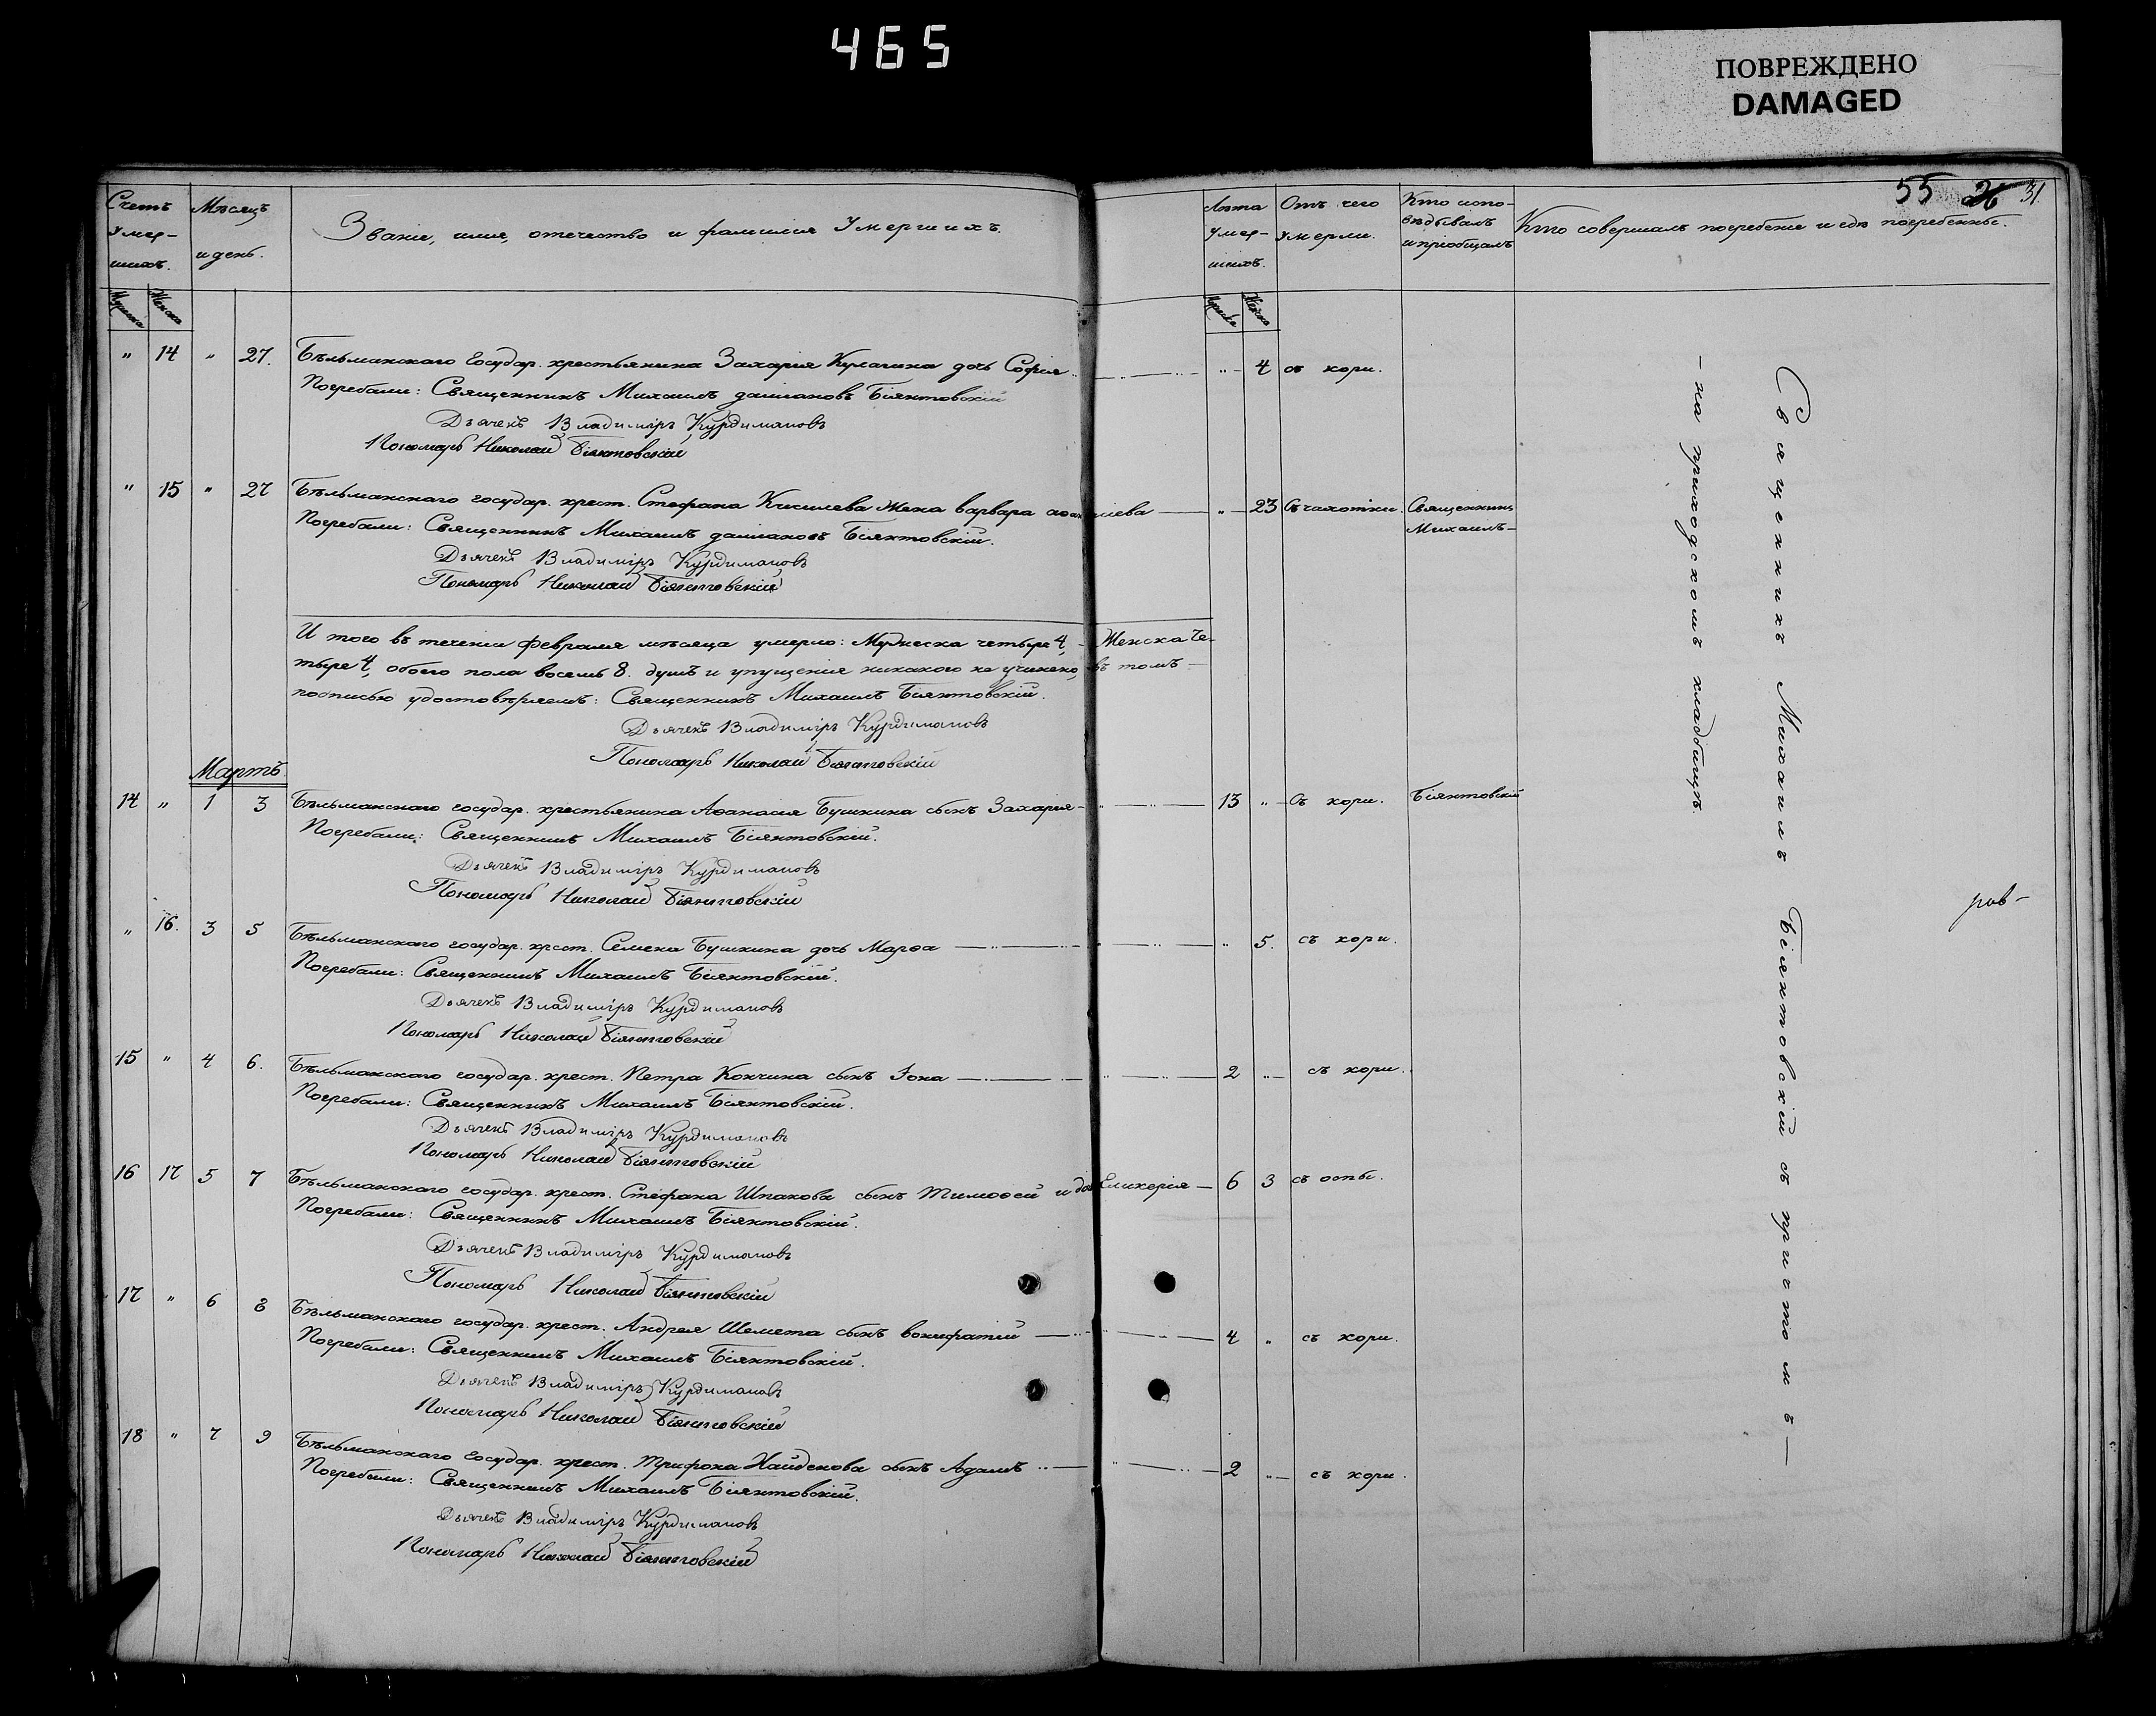 465
ПОВРЕЖДЕНО
DAMAGED
55 26 31
Счетъ умер-шихъ. Мѣсяцъ и день. Званіе, имя, отечество и фамилія Умершихъ. Лѣта умер-шихъ. Отъ чего умерли. Кто испо-вѣдывалъ и пріобщалъ Кто совершалъ погребеніе и гдѣ погребенны.
Мужеска Женска Мужеска Женска
" 14 " 27. Бѣльманскаго государ. крестьянина Захарія Кулагина дочь Софія " 4 съ кори.
Погребали: Священникъ Михаилъ даміановъ Біянтовскій
Дьячекъ Владиміръ Курдимановъ
Пономарь Николай Біянтовскій
" 15 " 27 Бѣльманскаго государ. крест. Стефана Киселева жена варвара " 23 Съ чахотки. Священникъ
Погребали: Священникъ Михаилъ даміановъ Біянтовскій. Михаилъ-
Дьячекъ Владиміръ Курдимановъ
Пономарь Николай Біянтовскій
И того въ теченіи февраля мѣсяца умерло: Мужеска четыре 4, - Женска че-
тыре 4, обоего пола восемь 8. душъ и упущенія никакого не учинено, въ томъ -
подписью удостовѣряемъ: Священникъ Михаилъ Біянтовскій.
Дьячекъ Владиміръ Курдимановъ
Пономарь Николай Біянтовскій
Мартъ.
14 " 1 3 Бѣльманскаго государ. крестьянина Аѳанасія Бушкина сынъ Захарія - 13 " Съ кори. Біянтовскій
Погребали: Священникъ Михаилъ Біянтовскій.
Дьячекъ Владиміръ Курдимановъ
Пономарь Николай Біянтовскій
" 16. 3 5 Бѣльманскаго государ. крест. Семена Бушкина дочь Марѳа " 5. съ кори.
Погребали: Священникъ Михаилъ Біянтовскій.
Дьячекъ Владиміръ Курдимановъ
Пономарь Николай Біянтовскій
15 " 4 6. Бѣльманскаго государ. крест. Петра Кончина сынъ Іона 2 " съ кори.
Погребали: Священникъ Михаилъ Біянтовскій.
Дьячекъ Владиміръ Курдимановъ
Пономарь Николай Біянтовскій
16 17 5 7 Бѣльманскаго государ. крест. Стефана Шпакова сынъ Тимоѳей и Гликерія - 6 3 съ оспы.
Погребали: Священникъ Михаилъ Біянтовскій.
Дьячекъ Владиміръ Курдимановъ
Пономарь Николай Біянтовскій
17 " 6 8 Бѣльманскаго государ. крест. Андрея Шемета сынъ вонифатій 4 " съ кори.
Погребали: Священникъ Михаилъ Біянтовскій.
Дьячекъ Владиміръ Курдимановъ
Пономарь Николай Біянтовскій
18 " 7 9 Бѣльманскаго государ. крест. Трифона Найденова сынъ Адамъ 2 " съ кори.
Погребали: Священникъ Михаилъ Біянтовскій.
Дьячекъ Владиміръ Курдимановъ
Пономарь Николай Біянтовскій
Священникъ Михаилъ Біянтовскій съ причтомъ -
- на приходскомъ кладбищѣ.